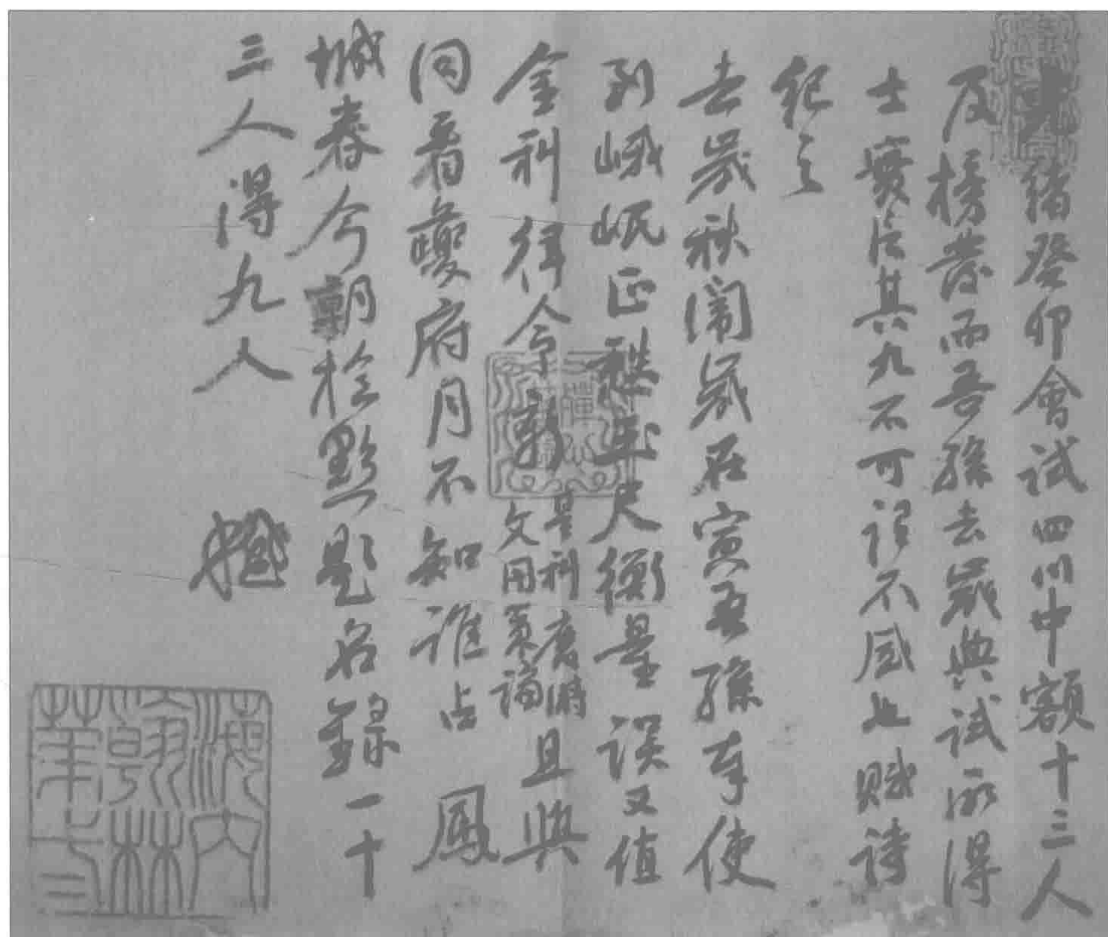 光緒癸卯會試四川中額十三人
及榜發而吾孫去歲典試所得
士實占其九不可謂不盛也賦詩
紀之
去歲秋闈歲在寅吾孫奉使
到峨岷正愁玉尺衡量誤又值
金科律令新是科廢時文用策論且與
同看夔府月不知誰占鳳
城春今朝檢點題名錄一十
三人得九人
海內翰林第二